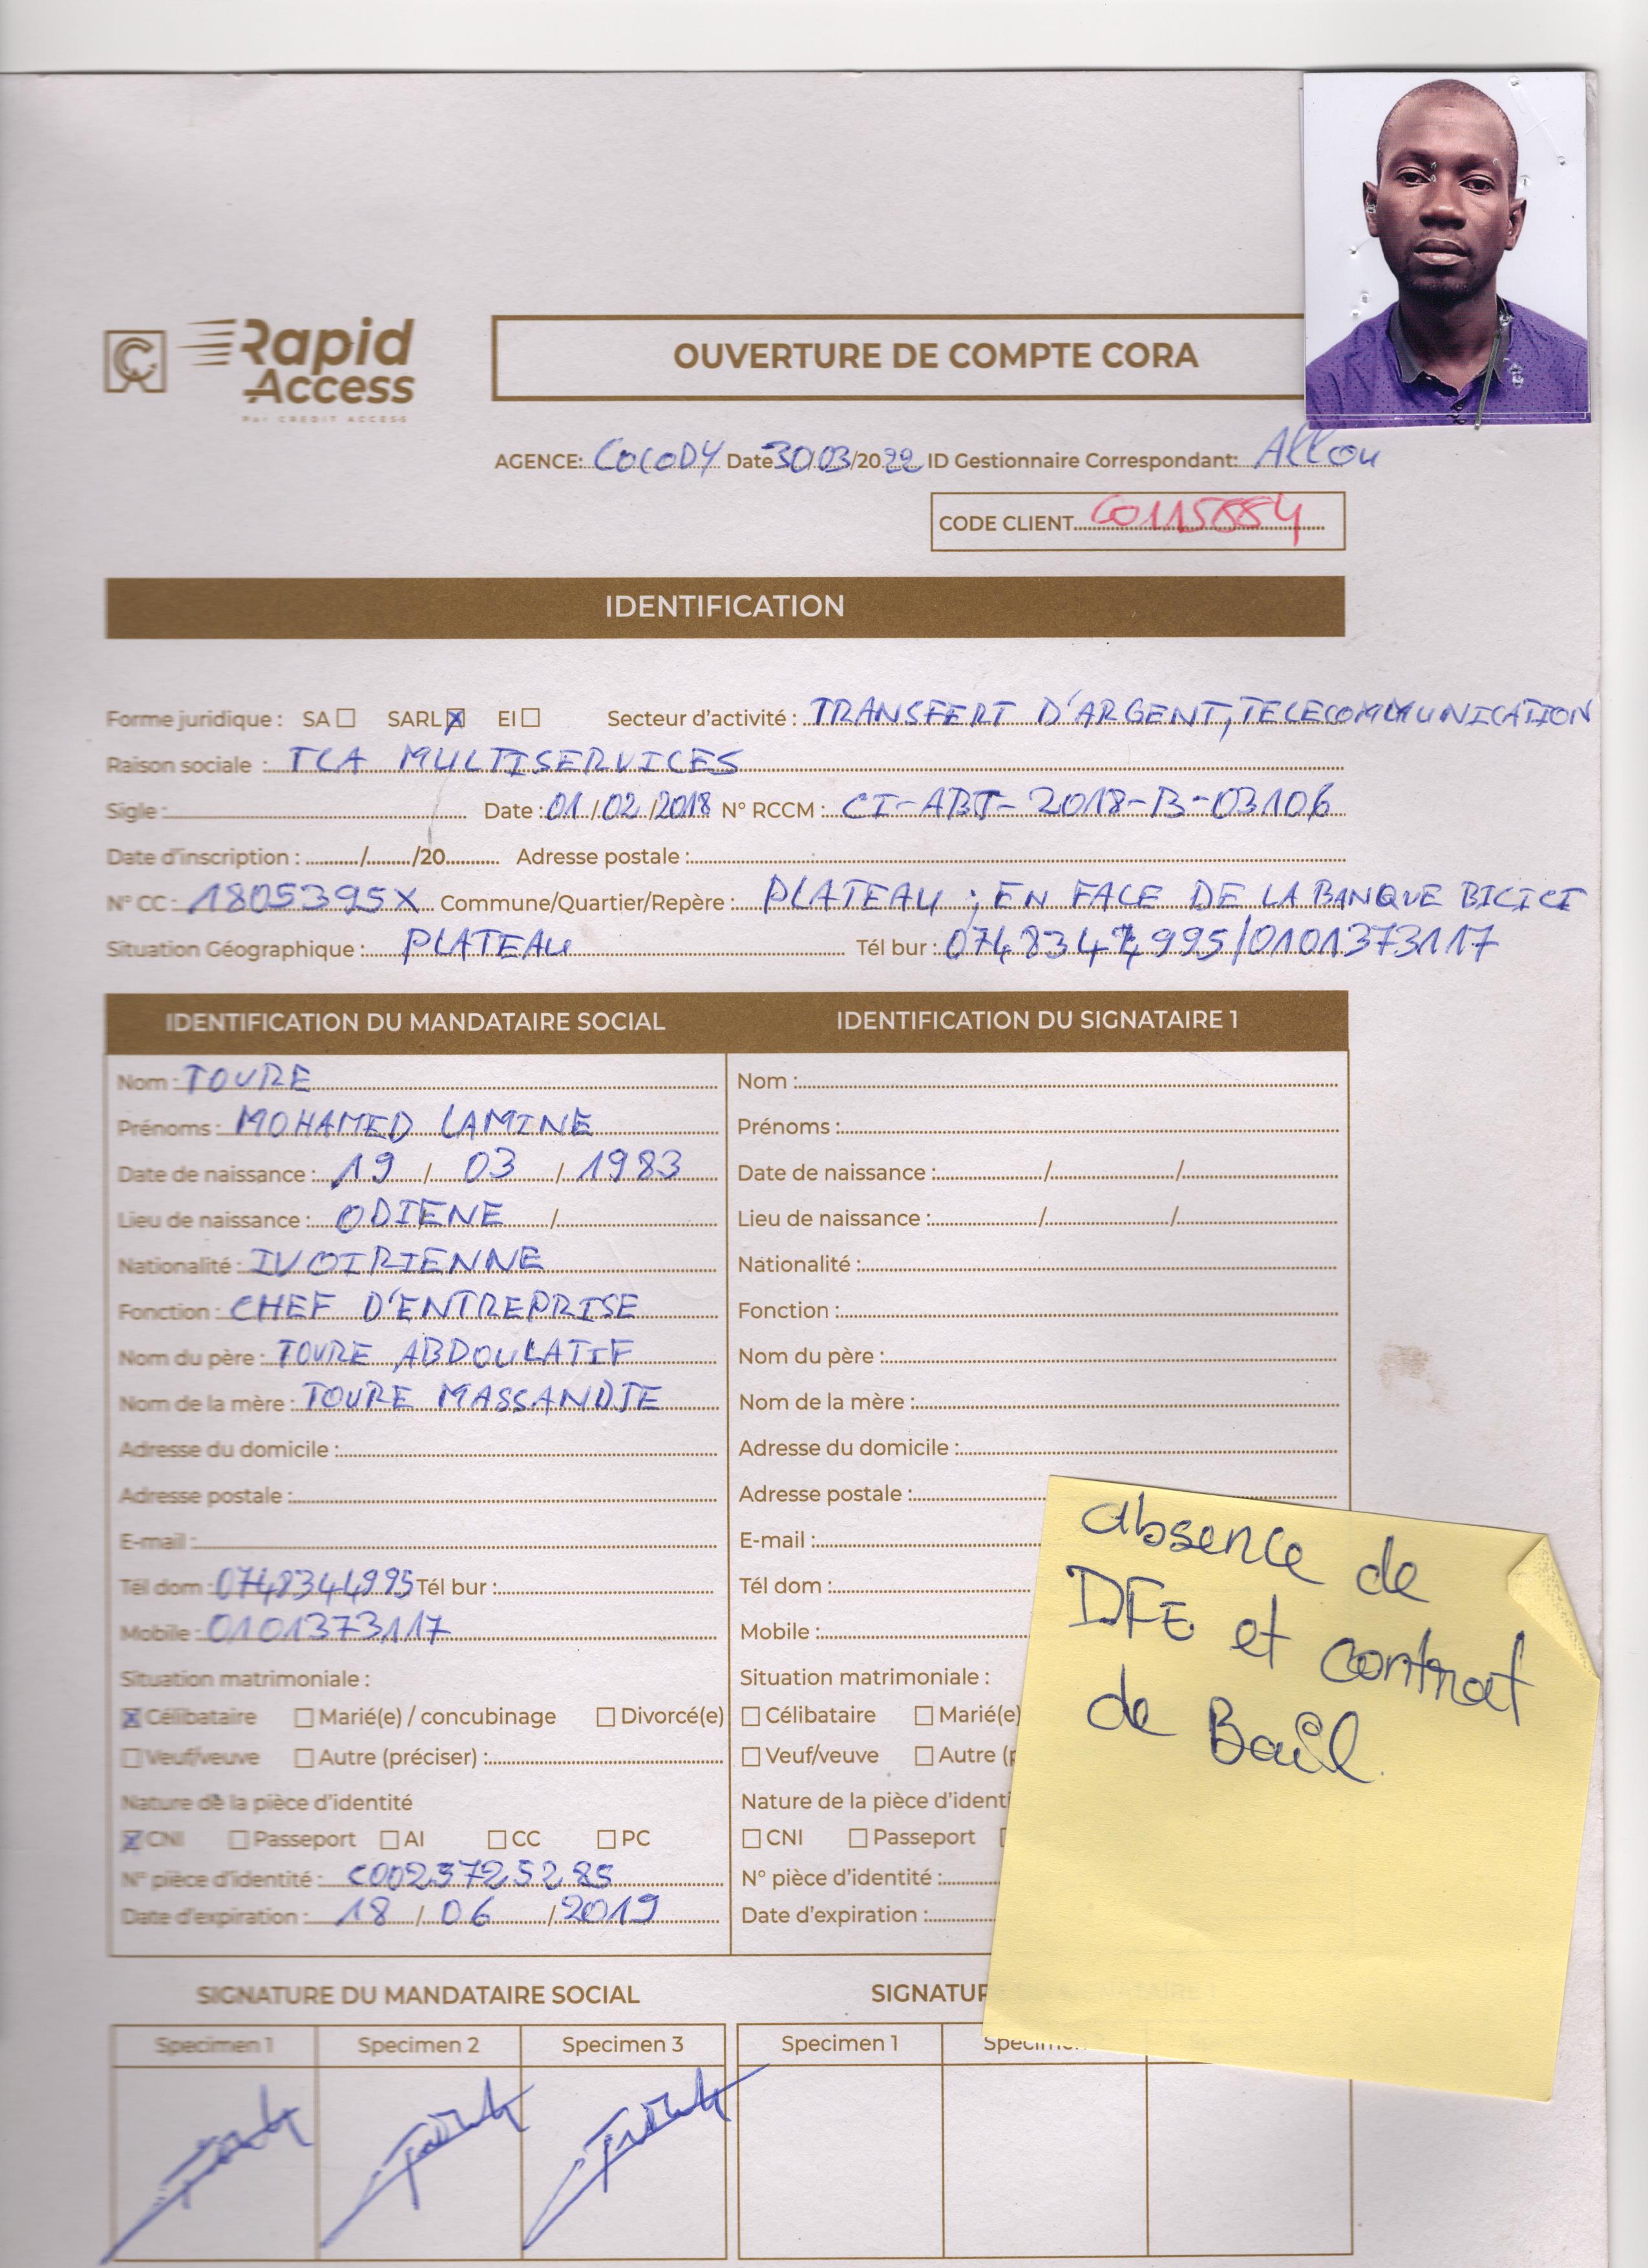 Rapid
Access
PAR CREDIT ACCESS
OUVERTURE DE COMPTE CORA
AGENCE: COCODY Date 30/03/2022 ID Gestionnaire Correspondant: Allou
CODE CLIENT
IDENTIFICATION
Forme juridique : SA ☐ SARL ☒ EI ☐ Secteur d'activité : TRANSFERT D'ARGENT, TELECOMMUNICATION
Raison sociale : TCA MULTISERVICES
Sigle : Date : 01/02/2018 N° RCCM : CI-ABJ-2018-B-03106
Date d'inscription : ......../......../20........ Adresse postale :
N° CC : 1805395X Commune/Quartier/Repère : PLATEAU ; EN FACE DE LA BANQUE BICICI
Situation Géographique : PLATEAU Tél bur : 0748344995/0101373117
IDENTIFICATION DU MANDATAIRE SOCIAL
Nom : TOURE
Prénoms : MOHAMED LAMINE
Date de naissance : 19 / 03 / 1983
Lieu de naissance : ODIENE /
Nationalité : IVOIRIENNE
Fonction : CHEF D'ENTREPRISE
Nom du père : TOURE ABDOULATIF
Nom de la mère : TOURE MASSANDJE
Adresse du domicile :
Adresse postale :
E-mail :
Tél dom : 0748344995 Tél bur :
Mobile : 0101373117
Situation matrimoniale :
☒ Célibataire ☐ Marié(e) / concubinage ☐ Divorcé(e)
☐ Veuf/veuve ☐ Autre (préciser) :
Nature de la pièce d'identité
☒ CNI ☐ Passeport ☐ AI ☐ CC ☐ PC
N° pièce d'identité : C0023725285
Date d'expiration : 18 / 06 / 2019
SIGNATURE DU MANDATAIRE SOCIAL
Specimen 1 Specimen 2 Specimen 3
IDENTIFICATION DU SIGNATAIRE 1
Nom :
Prénoms :
Date de naissance : / /
Lieu de naissance : / /
Nationalité :
Fonction :
Nom du père :
Nom de la mère :
Adresse du domicile :
Adresse postale :
E-mail :
Tél dom :
Mobile :
Situation matrimoniale :
☐ Célibataire ☐ Marié(e)
☐ Veuf/veuve ☐ Autre
Nature de la pièce d'identi
☐ CNI ☐ Passeport
N° pièce d'identité :
Date d'expiration :
SIGNATUR
Specimen 1
absence de
DFE et contrat
de Bail.